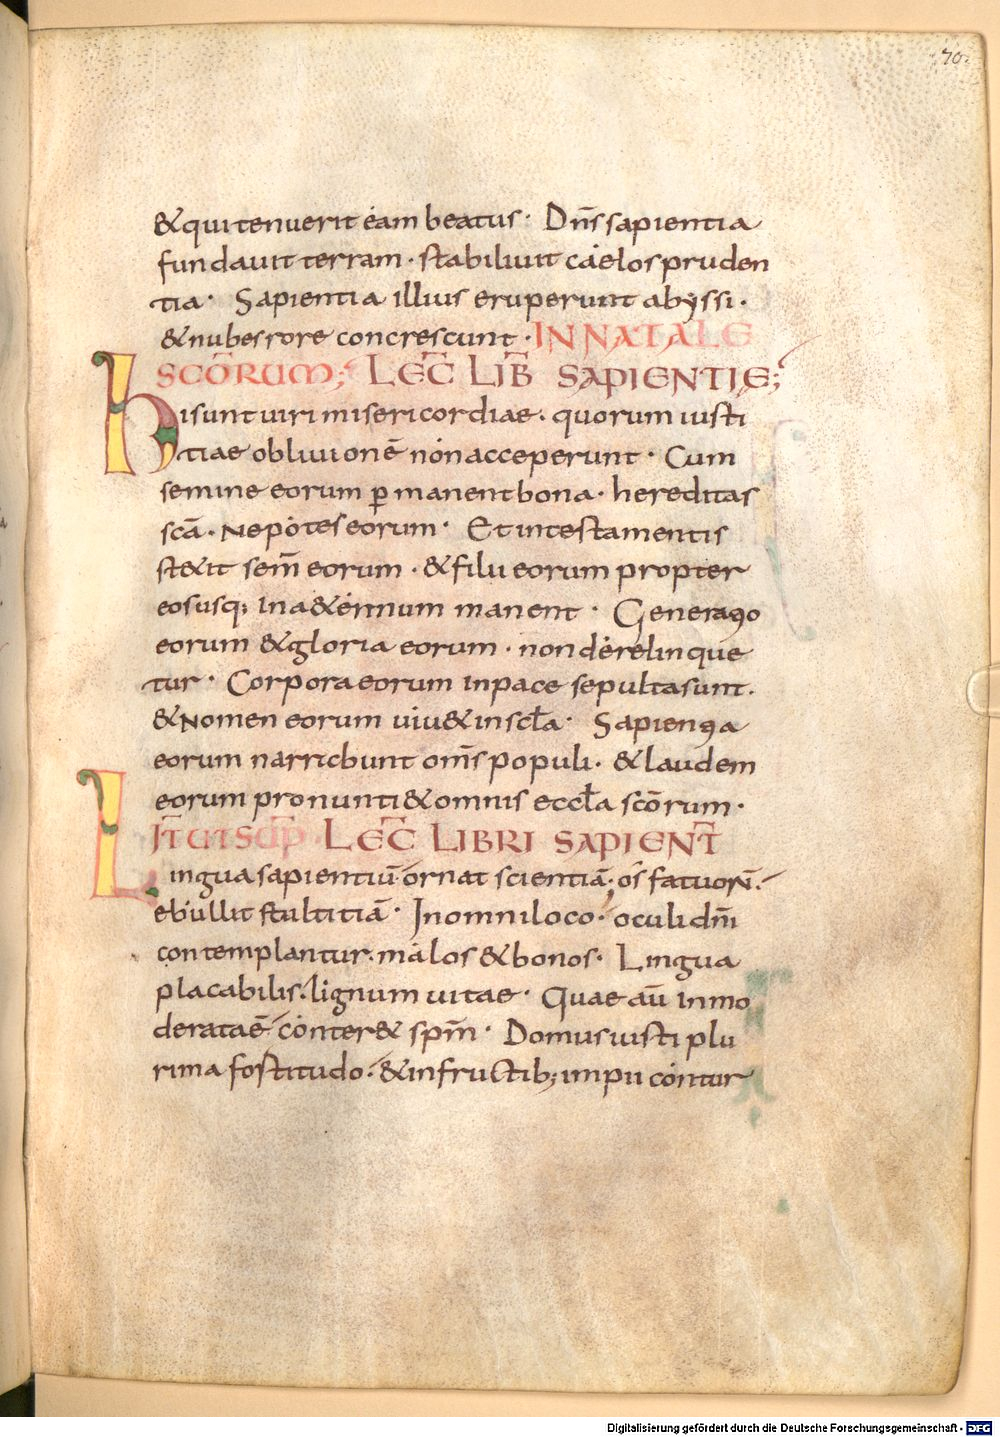 70.
& qui tenuerit eam beatus · Dn̄s sapientia
fundavit terram · stabilivit caelos pruden
tia · Sapientia illius eruperunt abyssi ·
& nubes rore concrescunt · IN NATALE
SCŌRUM; LEC̄ LIB̄ SAPIENTIE;
Hi sunt viri misericordiae · quorum iusti
tiae oblivionē non acceperunt · Cum
semine eorum p̱manent bona · hereditas
scā · Nepotes eorum · Et in testamentis
stetit sem̄ eorum · & filii eorum propter
eos usq; in a&ernum manent · Generatio
eorum & gloria eorum · non derelinque
tur · Corpora eorum in pace sepulta sunt ·
& Nomen eorum viv& in scl̄a · Sapientia
eorum narricbunt om̄s populi · & laudem
eorum pronunti& omnis eccl̄a scōrum ·
IT̄ UT SUP̄ · LEC̄ LIBRI SAPIENT̄
Lingua sapientiū ornat scientiā · os̄ fatuorū ·
ebullit stultitiā · In omni loco · oculi dn̄i
contemplantur · malos & bonos · Lingua
placabilis · lignum vitae · Quae aū inmo
derataē conter& spm̄ · Domus iusti plu
rima fostitudo · & in fructib; impii contur
Digitalisierung gefördert durch die Deutsche Forschungsgemeinschaft - DFG